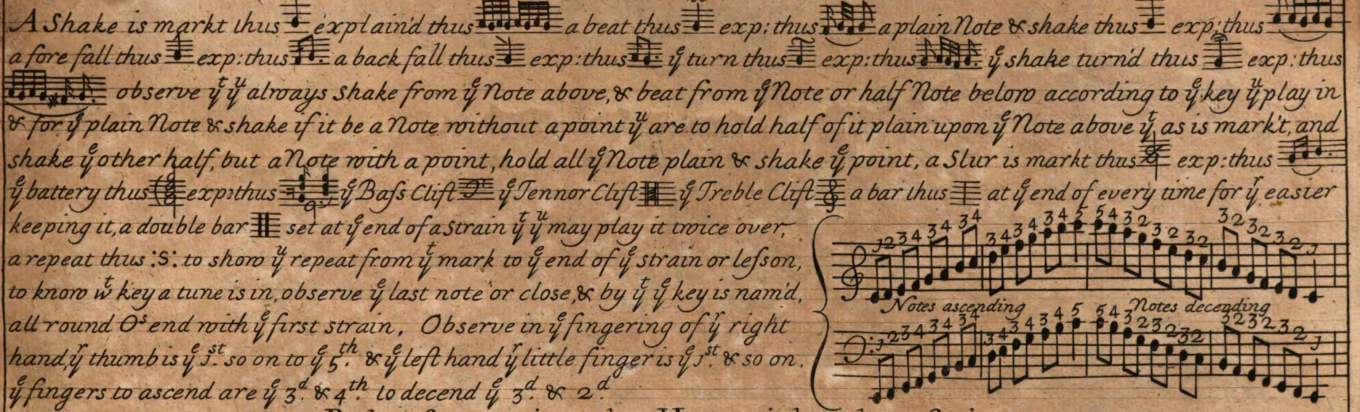 A Shake is markt thus explain'd thus a beat thus exp: thus a plain Note & shake thus exp: thus
a fore fall thus exp: thus a back fall thus exp: thus yᵉ turn thus exp: thus yᵉ shake turn'd thus exp: thus
observe yᵗ yᵘ always shake from yᵉ Note above, & beat from yᵉ Note or half Note below according to yᵉ key yᵘ play in
& for yᵉ plain Note & shake if it be a Note without a point yᵘ are to hold half of it plain upon yᵉ Note above yᵗ as is mark't, and
shake yᵉ other half, but a Note with a point, hold all yᵉ Note plain & shake yᵉ point, a Slur is markt thus exp: thus
yᵉ battery thus exp: thus yᵉ Bass Clift yᵉ Tennor Clift yᵉ Treble Clift a bar thus at yᵉ end of every time for yᵉ easier
keeping it, a double bar set at yᵉ end of a Strain yᵗ yᵘ may play it twice over,
a repeat thus :S: to show yᵉ repeat from yᵗ mark to yᵉ end of yᵉ strain or lesson,
to know wᵗ key a tune is in, observe yᵉ last note or close, & by yᵗ yᵉ key is nam'd,
all round Oˢ end with yᵉ first strain. Observe in yᵉ fingering of yᵉ right
hand, yᵉ thumb is yᵉ 1ˢᵗ so on to yᵉ 5ᵗʰ. & yᵉ left hand yᵉ little finger is yᵉ 1ˢᵗ & so on.
yᵉ fingers to ascend are yᵉ 3ᵈ & 4ᵗʰ. to decend yᵉ 3ᵈ. & 2ᵈ
Notes ascending Notes decending